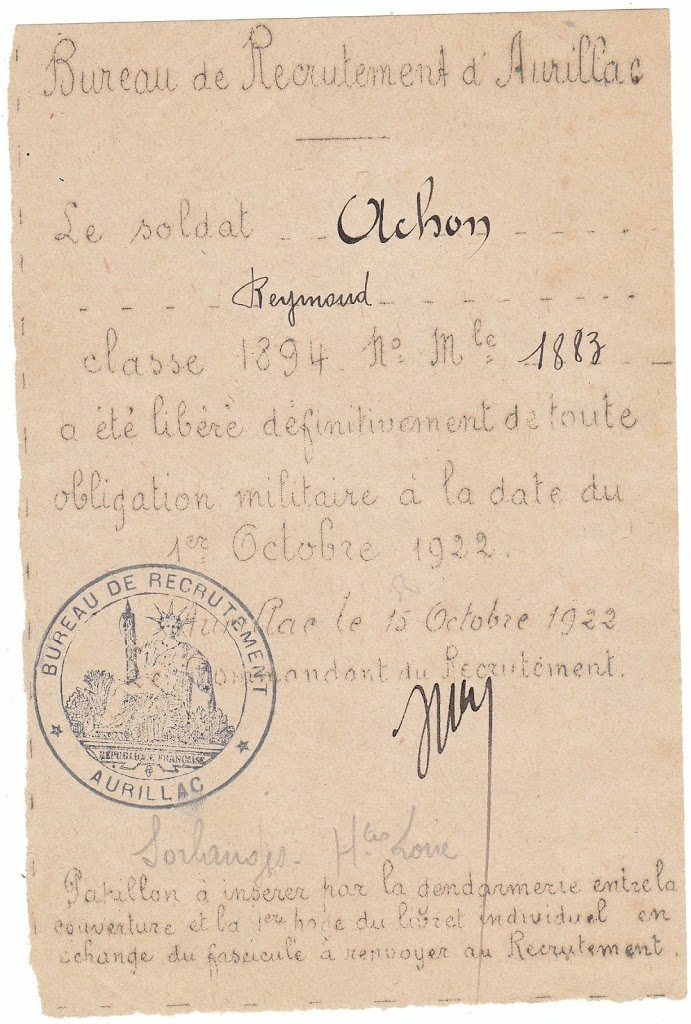 Bureau de Recrutement d'Aurillac
Le soldat Achon
Reymond
classe 1894 No Mle 1883
a été libéré définitivement de toute
obligation militaire à la date du
1er Octobre 1922.
Aurillac le 15 Octobre 1922
Le Commandant du Recrutement.
BUREAU DE RECRUTEMENT
RÉPUBLIQUE FRANÇAISE
AURILLAC
Hte Loire
Papillon à insérer par la Gendarmerie entre la
couverture et la 1ere page du livret individuel en
échange du fascicule à renvoyer au Recrutement.